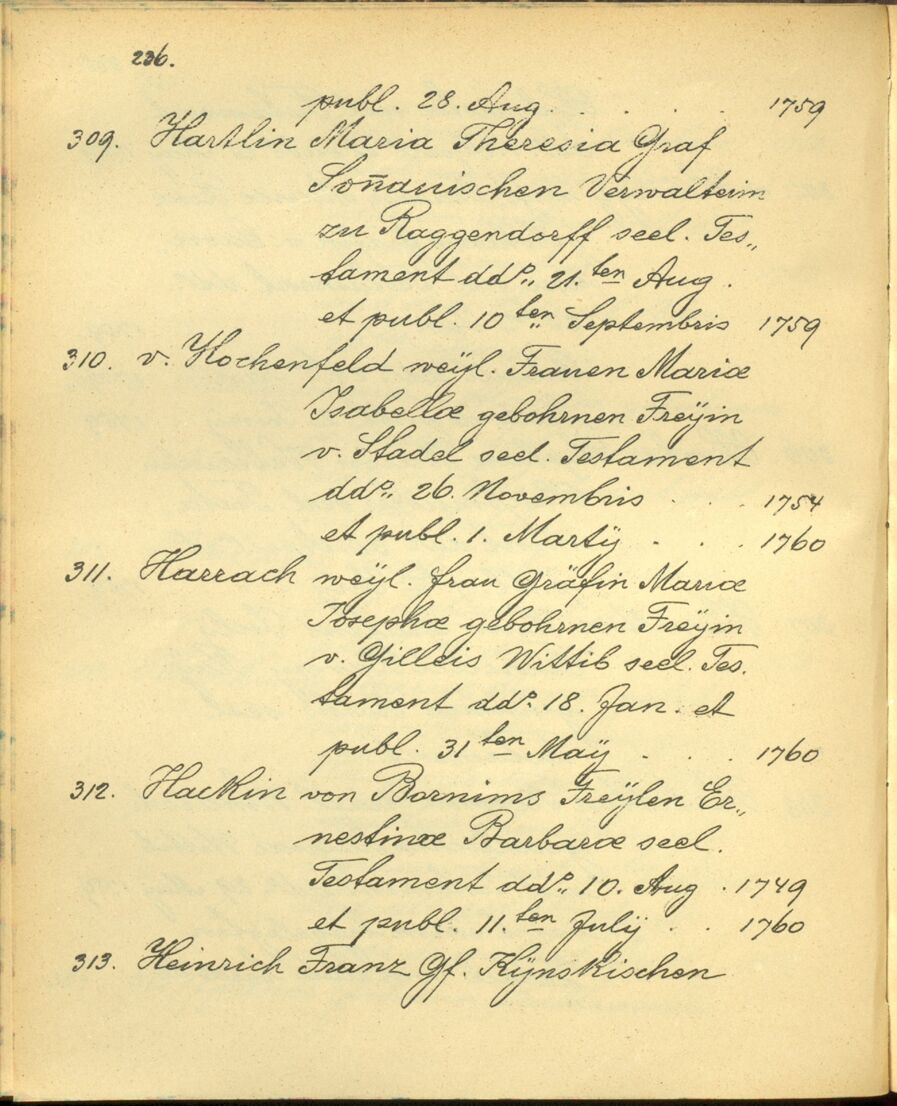 236.
publ. 28. Aug. . . . . 1759
309. Hartlin Maria Theresia Graf
Soñauischen Verwalterin
zu Raggendorff seel. Tes„
tament ddº„ 21.ten Aug.
et publ. 10ten Septembris 1759
310. v. Hochenfeld weÿl. Frauen Mariæ
Isabellæ gebohrnen Freÿin
v. Stadel seel. Testament
ddº„ 26. Novembris . . . 1754
et publ. 1. Martÿ . . . 1760
311. Harrach weÿl. frau Gräfin Mariæ
Josephæ gebohrnen Freÿin
v. Gilleis Wittib seel. Tes.
tament ddº. 18. Jan. et
publ. 31ten Maÿ . . . 1760
312. Hackin von Bornims Freÿlen Er„
nestinæ Barbaræ seel.
Testament ddº„ 10. Aug . 1749
et publ. 11.ten Julÿ . . 1760
313. Heinrich Franz Gf. Kÿnskischen